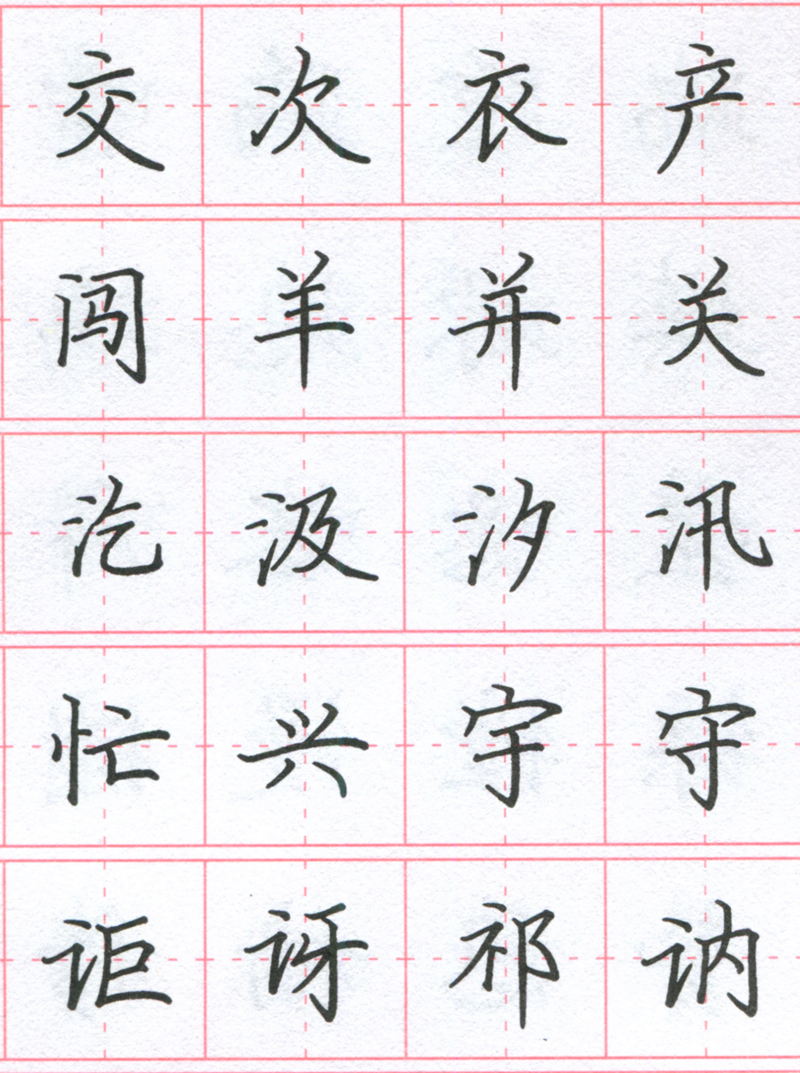 交次衣产
闯羊并关
汔汲汐汛
忙兴宇守
讵讶祁讷